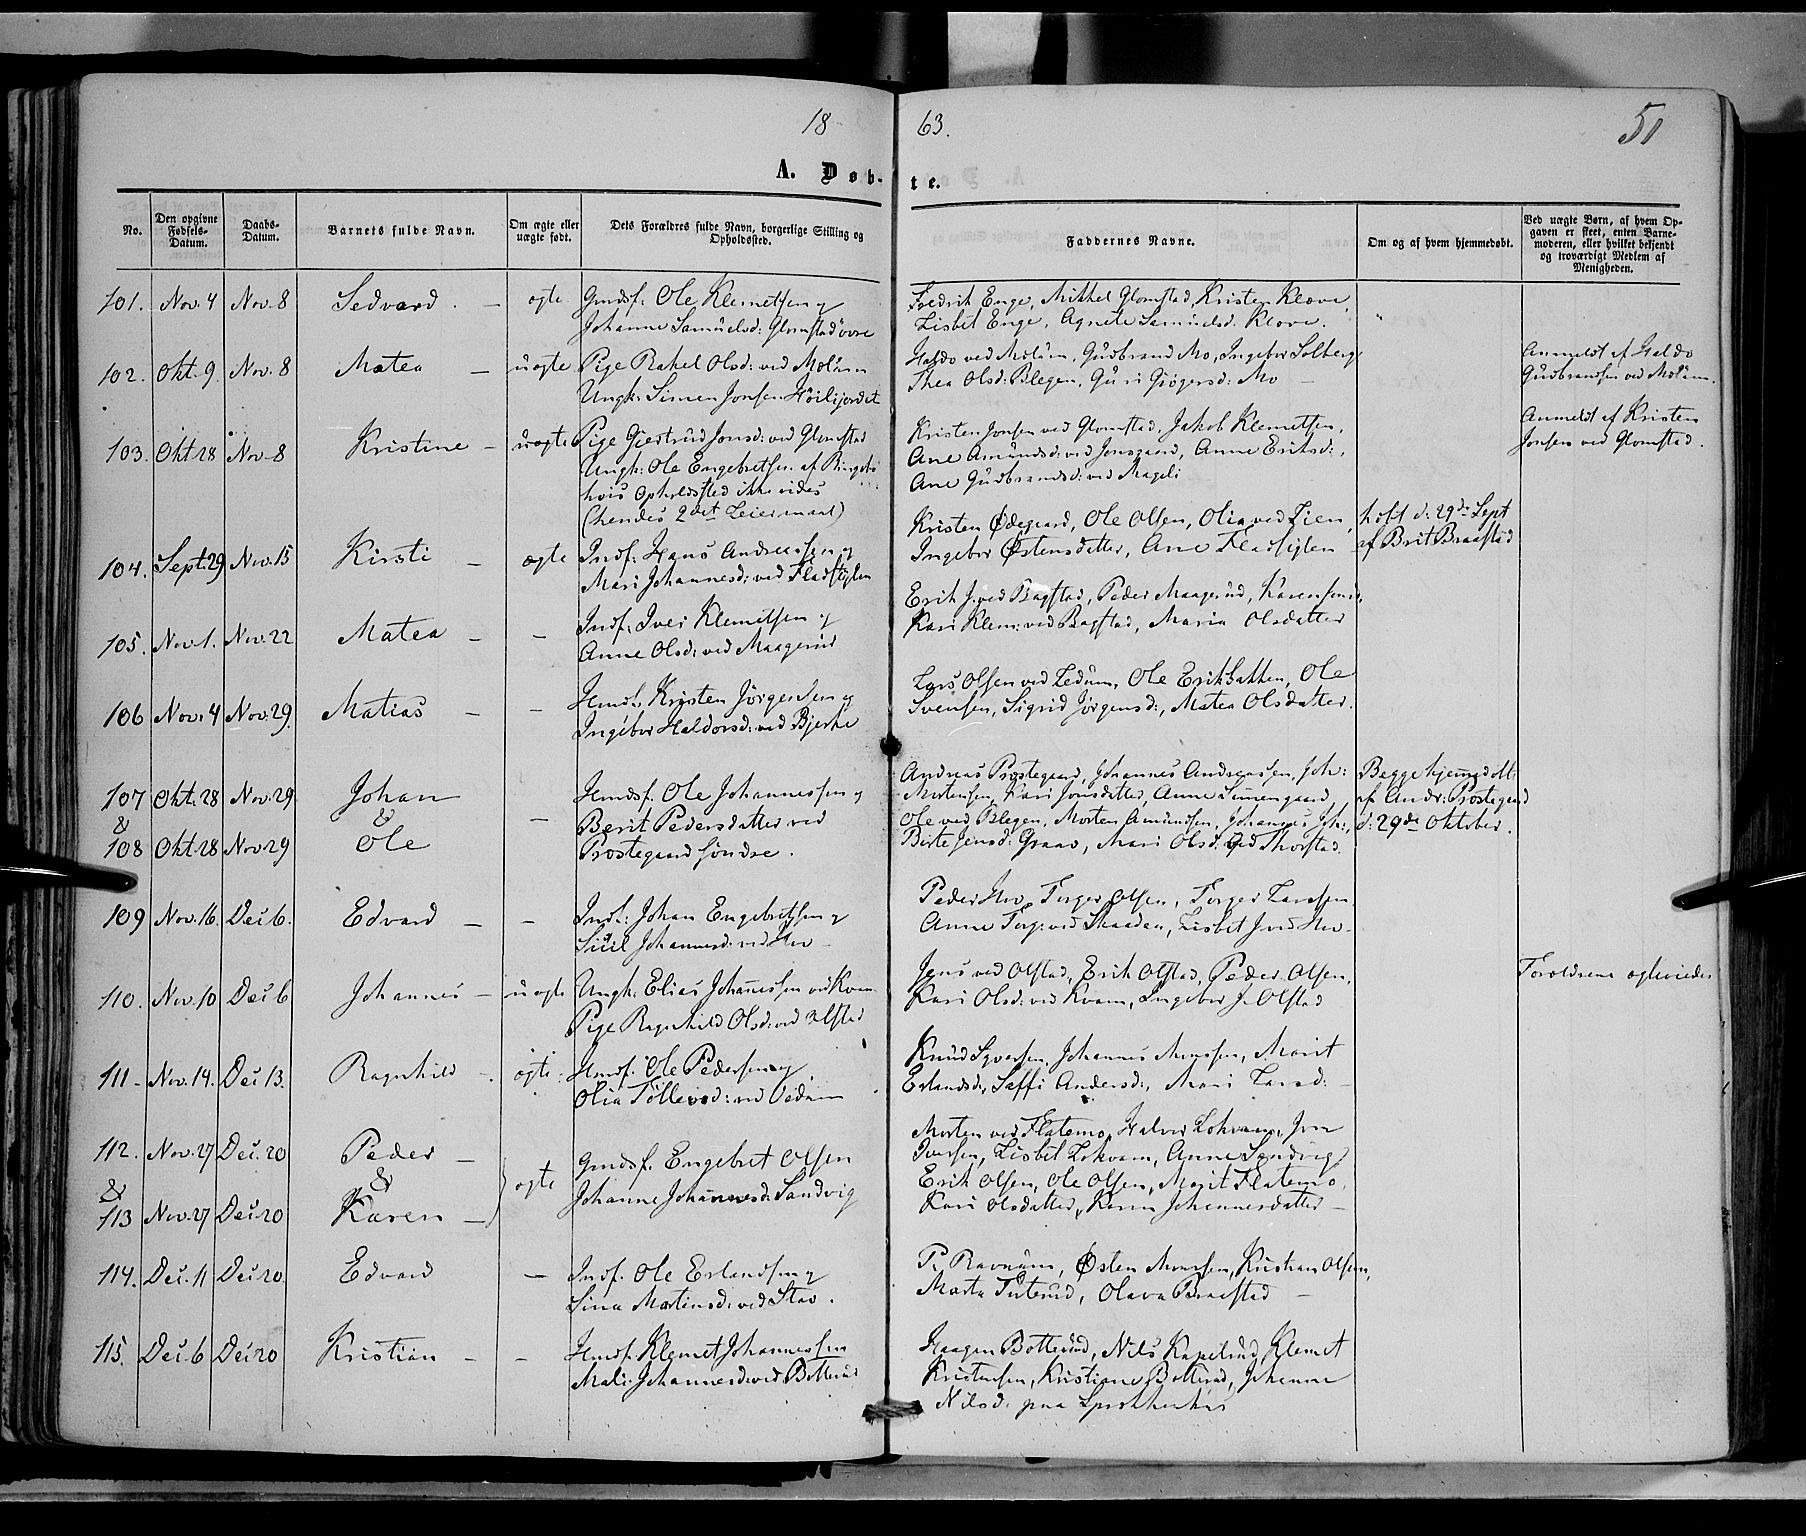 1863.
51
A. Døbte.
No.
Den opgivne Fødsels-Datum.
Daabs-Datum.
Barnets fulde Navn.
Om ægte eller uægte født.
Dets Forældres fulde Navn, borgerlige Stilling og Opholdssted.
Faddernes Navne.
Om og af hvem hjemmedøbt.
Ved uægte Børn, af hvem Opgaven er skeet, enten Barnemoderen, eller hvilket bekjendt og troværdigt Medlem af Menigheden.
101. Nov. 4 Nov. 8 Sedvard. - ægte Gmdsf. Ole Klemetsen og
Johanne Samuelsd: Glomstad øvre
Fredrik Enge, Mikkel Glomstad, Kristen Kløve,
Lisbet Enge, Agnete Samuelsd. Kløve.
102. Okt. 9. Nov. 8 Matea - uægte Pige Rakel Olsd: ved Molum
Ungk: Simen Jonsen
Haldo ved Molum, Gudbrand Mo, Ingebor Solberg
Thea Olsd: Blegen, Guri Mo -
Anmeldt af Haldo
Gudbrandsen ved Molum.
103. Okt. 28 Nov. 8 Kristine - uægte Pige Giertrud Jonsd: ved Glomstad
Ungk: Ole Engebretsen af Ringebo
hvis Opholdssted ikke vides
(hendes 2det Leiermaal)
Kristen Jonsen ved Glomstad, Jakob Klemetsen,
Ane Amundsd: ved Jonsgaard, Anne Eriksd:,
Ane Gudbrandsd: ved Mageli
Anmeldt af Kristen
Jonsen ved Glomstad.
104. Sept. 29 Nov. 15 Kirsti - ægte Indf: Hans Andreassen og
Mari Johannesd: ved Fladsiglen
Kristen Ødegaard, Ole Olsen, Olia ved Lien,
Ingebor Østensdatter, Ane Fladsiglen
høft d: 29de Sept
af Brit Braastad
105. Nov. 1. Nov. 22 Matea - - Indf: Iver Klemetsen og
Anne Olsd: ved Maagerud
Erik J. ved Bagstad, Peder Maagerud,
Kari Klem: ved Bagstad, Maria Olsdatter
106 Nov. 4 Nov. 29. Matias - - Kristen Jørgensen og
Ingebor Haldorsd: ved Bjerke
Lars Olsen ved Ledum, Ole Eriksbakken, Ole
Svensen, Sigrid Jørgensd:, Matea Olsdatter.
107 Okt. 28 Nov. 29. Johan
&
108 Okt. 28 Nov. 29 Ole
- Hmdsf. Ole Johannessen og
Berit Pedersdatter ved
Prostegaard søndre.
Andreas Prostegaard, Johannes Andreassen, Joh:
Mortensen, Kari Jonsdatter, Anne Simengaard
Ole ved Blegen, Morten Amundsen, Johannes Joh:,
Birte Jensd: Graav, Mari Olsd. ved Thorstad.
Begge hjemmedøbt
af Andr: Prostegaard
d: 29de Oktober.
109 Nov. 16. Dec 6. Edvard - - Indf: Johan Engebretsen og
Sicil Johannesd: ved Hov -
Peder Hov, Torger Olsen, Torger Larssen
Anne Torg: ved Skaaden, Lisbet J. ved Hov -
110. Nov. 10 Dec 6 Johannes - uægte Ungk: Elias Johannessen ved Kvam
Pige Ragnhild Olsd: ved Olstad
Jens ved Olstad, Erik Olstad, Peder Olsen,
Kari Olsd: ved Kvam, Ingebor J. Olstad
Forældrene ægteviedes
111 - Nov. 14. Dec 13. Ragnhild - ægte. Hmdsf. Ole Pedersen og
Olia Tollevsd: ved
Knud Syversen, Johannes Monssen, Marit
Erlandsd:, Siffi Andersd:, Mari Larsd: -
112. Nov. 27 Dec. 20 Peder -
&
113 Nov. 27 Dec. 20 Karen -
ægte Gmdsf. Engebret Olsen
Johanne Johannesd: Sandvig
Morten ved Flatemo, Halvor Lokvam, Iver
Iversen, Lisbet Lokvam, Anne Sandvig
Erik Olsen, Ole Olsen, Marit Flatemo,
Kari Olsdatter, Karen Johannesdatter -
114. Dec. 11 Dec 20. Edvard - Indf. Ole Erlandsen og
Sina Martinsd: ved Stav.
P. Ravnum, Østen Monssen, Kristian Olsen,
Marta Tuterud, Olava Braastad -
115. Dec. 6 Dec 20 Kristian - - Hmdsf. Klemet Johannessen
Mali Johannesd: ved Botterud
Haagen Botterud, Nils Kapelrud, Klemet
Kristensen, Kristiane Botterud, Johanne
Nilsd. paa